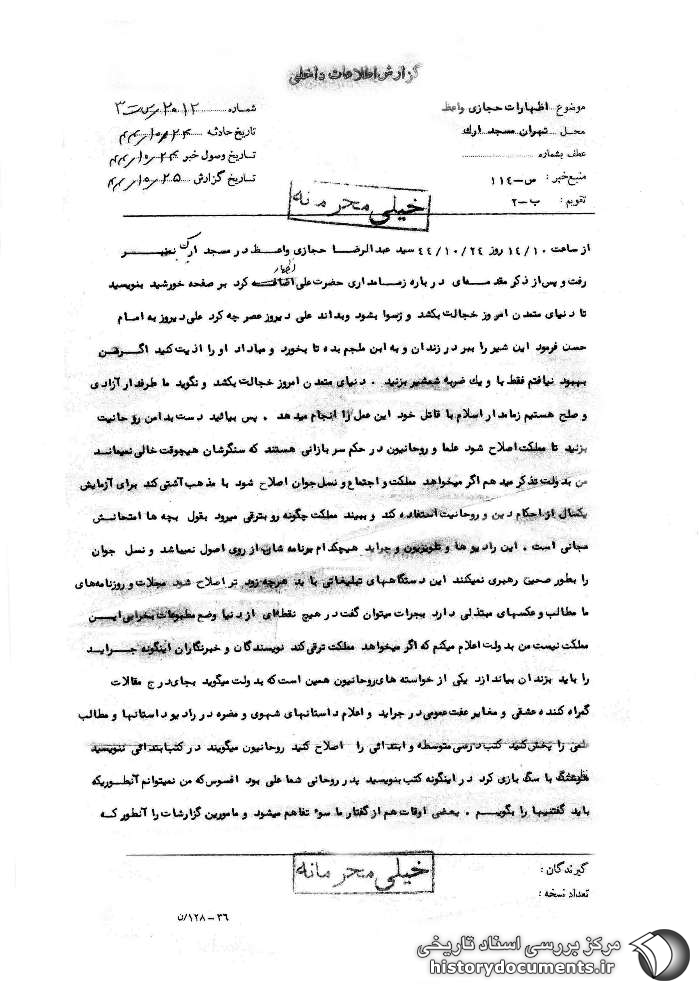 گزارش اطلاعات داخلی
موضوع : اظهارات حجازی واعظ
محل : تهران مسجد ارک
عطف بشماره
منبع خبر : س-۱۱۴
تقویم : ب-۲
شماره ۲۰۱۲
تاریخ حادثه
تاریخ وصول خبر
تاریخ گزارش
خیلی محرمانه
از ساعت ۱۴/۱۰ روز ۴۴/۱۰/۲۴ سید عبدالرضا حجازی واعظ در مسجد ارک بمنبر
رفت و پس از ذکر مقدمه‌ای درباره زمامداری حضرت علی اظهار کرد بر صفحه خورشید بنویسید
تا دنیای متمدن امروز خجالت بکشد و رسوا بشود وبداند علی دیروز عصر چه کرد علی دیروز به امام
حسن فرمود این شیر را ببر در زندان و به ابن ملجم بده تا بخورد و مبادا او را اذیت کنید اگر من
بهبود نیافتم فقط با و یک ضربه شمشیر بزنید . دنیای متمدن امروز خجالت بکشد و نگوید ما طرفدار آزادی
و صلح هستیم زمامدار اسلام با قاتل خود این عمل را انجام میدهد . پس بیائید دست بدامن روحانیت
بزنید تا مملکت اصلاح شود علما و روحانیون در حکم سربازانی هستند که سنگرشان هیچوقت خالی نمیماند
من بدولت تذکر میدهم اگر میخواهد مملکت و اجتماع و نسل جوان اصلاح شود با مذهب آشتی کند برای آزمایش
یکسال از احکام دین و روحانیت استفاده کند و ببیند مملکت چگونه رو بترقی میرود بقول بچه ها امتحانش
مجانی است . این رادیو ها و تلویزیون و جراید هیچکدام برنامه شان از روی اصول نمیباشد و نسل جوان
را بطور صحیح رهبری نمیکنند این دستگاههای تبلیغاتی باید هرچه زود تر اصلاح شود مجلات و روزنامه‌های
ما مطالب و عکسهای مبتذلی دارد بجرات میتوان گفت در هیچ نقطه‌ای از دنیا وضع مطبوعات بخرابی این
مملکت نیست من بدولت اعلام میکنم که اگر میخواهد مملکت ترقی کند نویسندگان و خبرنگاران اینگونه جراید
را باید بزندان بیاندازد یکی از خواسته های روحانیون همین است که بدولت میگوید بجای درج مقالات
گمراه کننده عشقی و مغایر عفت عمومی در جراید و اعلام داستانهای شهوی و مضره در رادیو داستانها و مطالب
علمی را پخش کنید کتب درسی متوسطه و ابتدائی را اصلاح کنید روحانیون میگویند در کتب ابتدائی ننویسید
هوشنگ با سگ بازی کرد در اینگونه کتب بنویسید پدر روحانی شما علی بود افسوس که من نمیتوانم آنطوریکه
باید گفتنیها را بگویم . بعضی اوقات هم از گفتار ما سوء تفاهم میشود و مامورین گزارشات را آنطور که
گیرندگان :
تعداد نسخه :
خیلی محرمانه
۳۶-۱۲۸/ن
مرکز بررسی اسناد تاریخی
historydocuments.ir